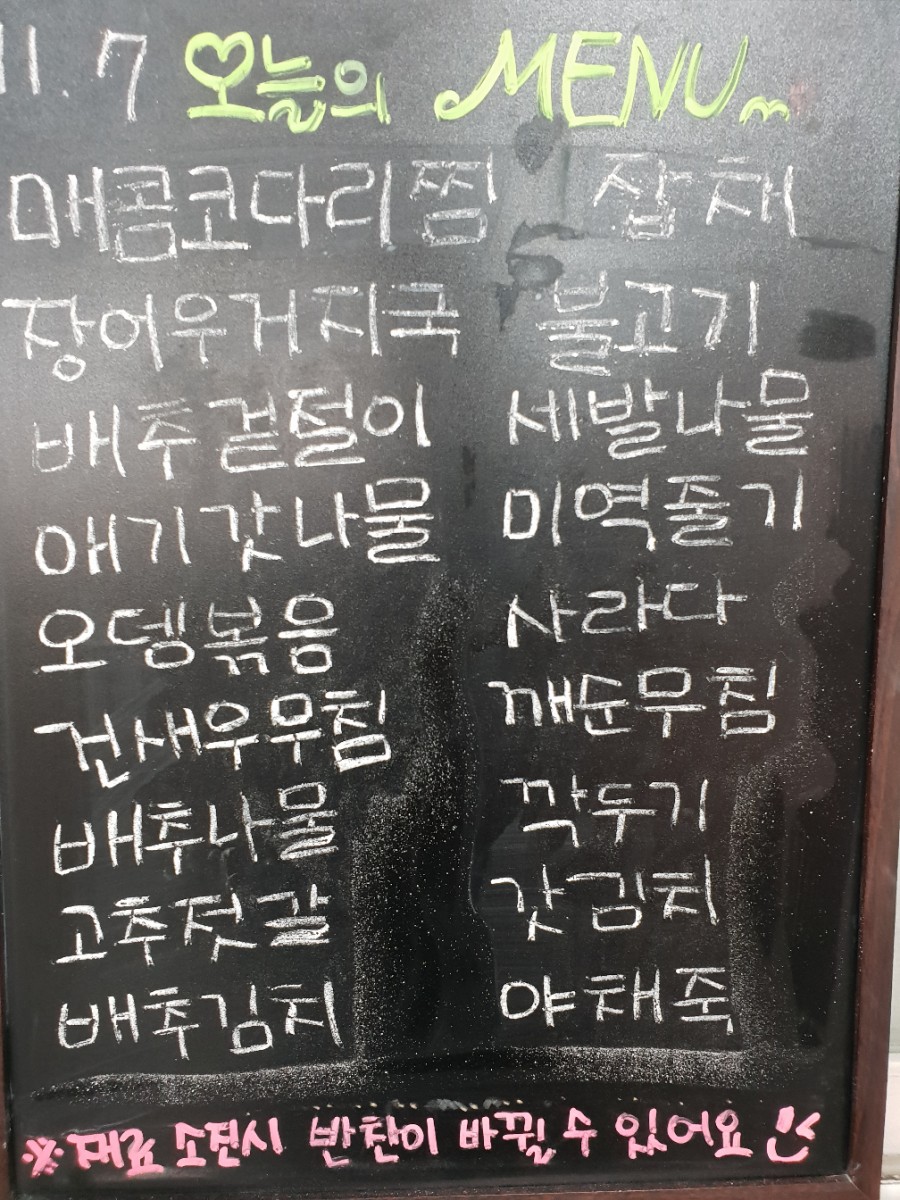 11. 7 오늘의 MENU
매콤코다리찜 잡채
장어우거지국 불고기
배추겉절이 세발나물
애기갓나물 미역줄기
오뎅볶음 사라다
건새우무침 깨순무침
배추나물 깍두기
고추젓갈 갓김치
배추김치 야채죽
※ 재료 소진시 반찬이 바뀔 수 있어요